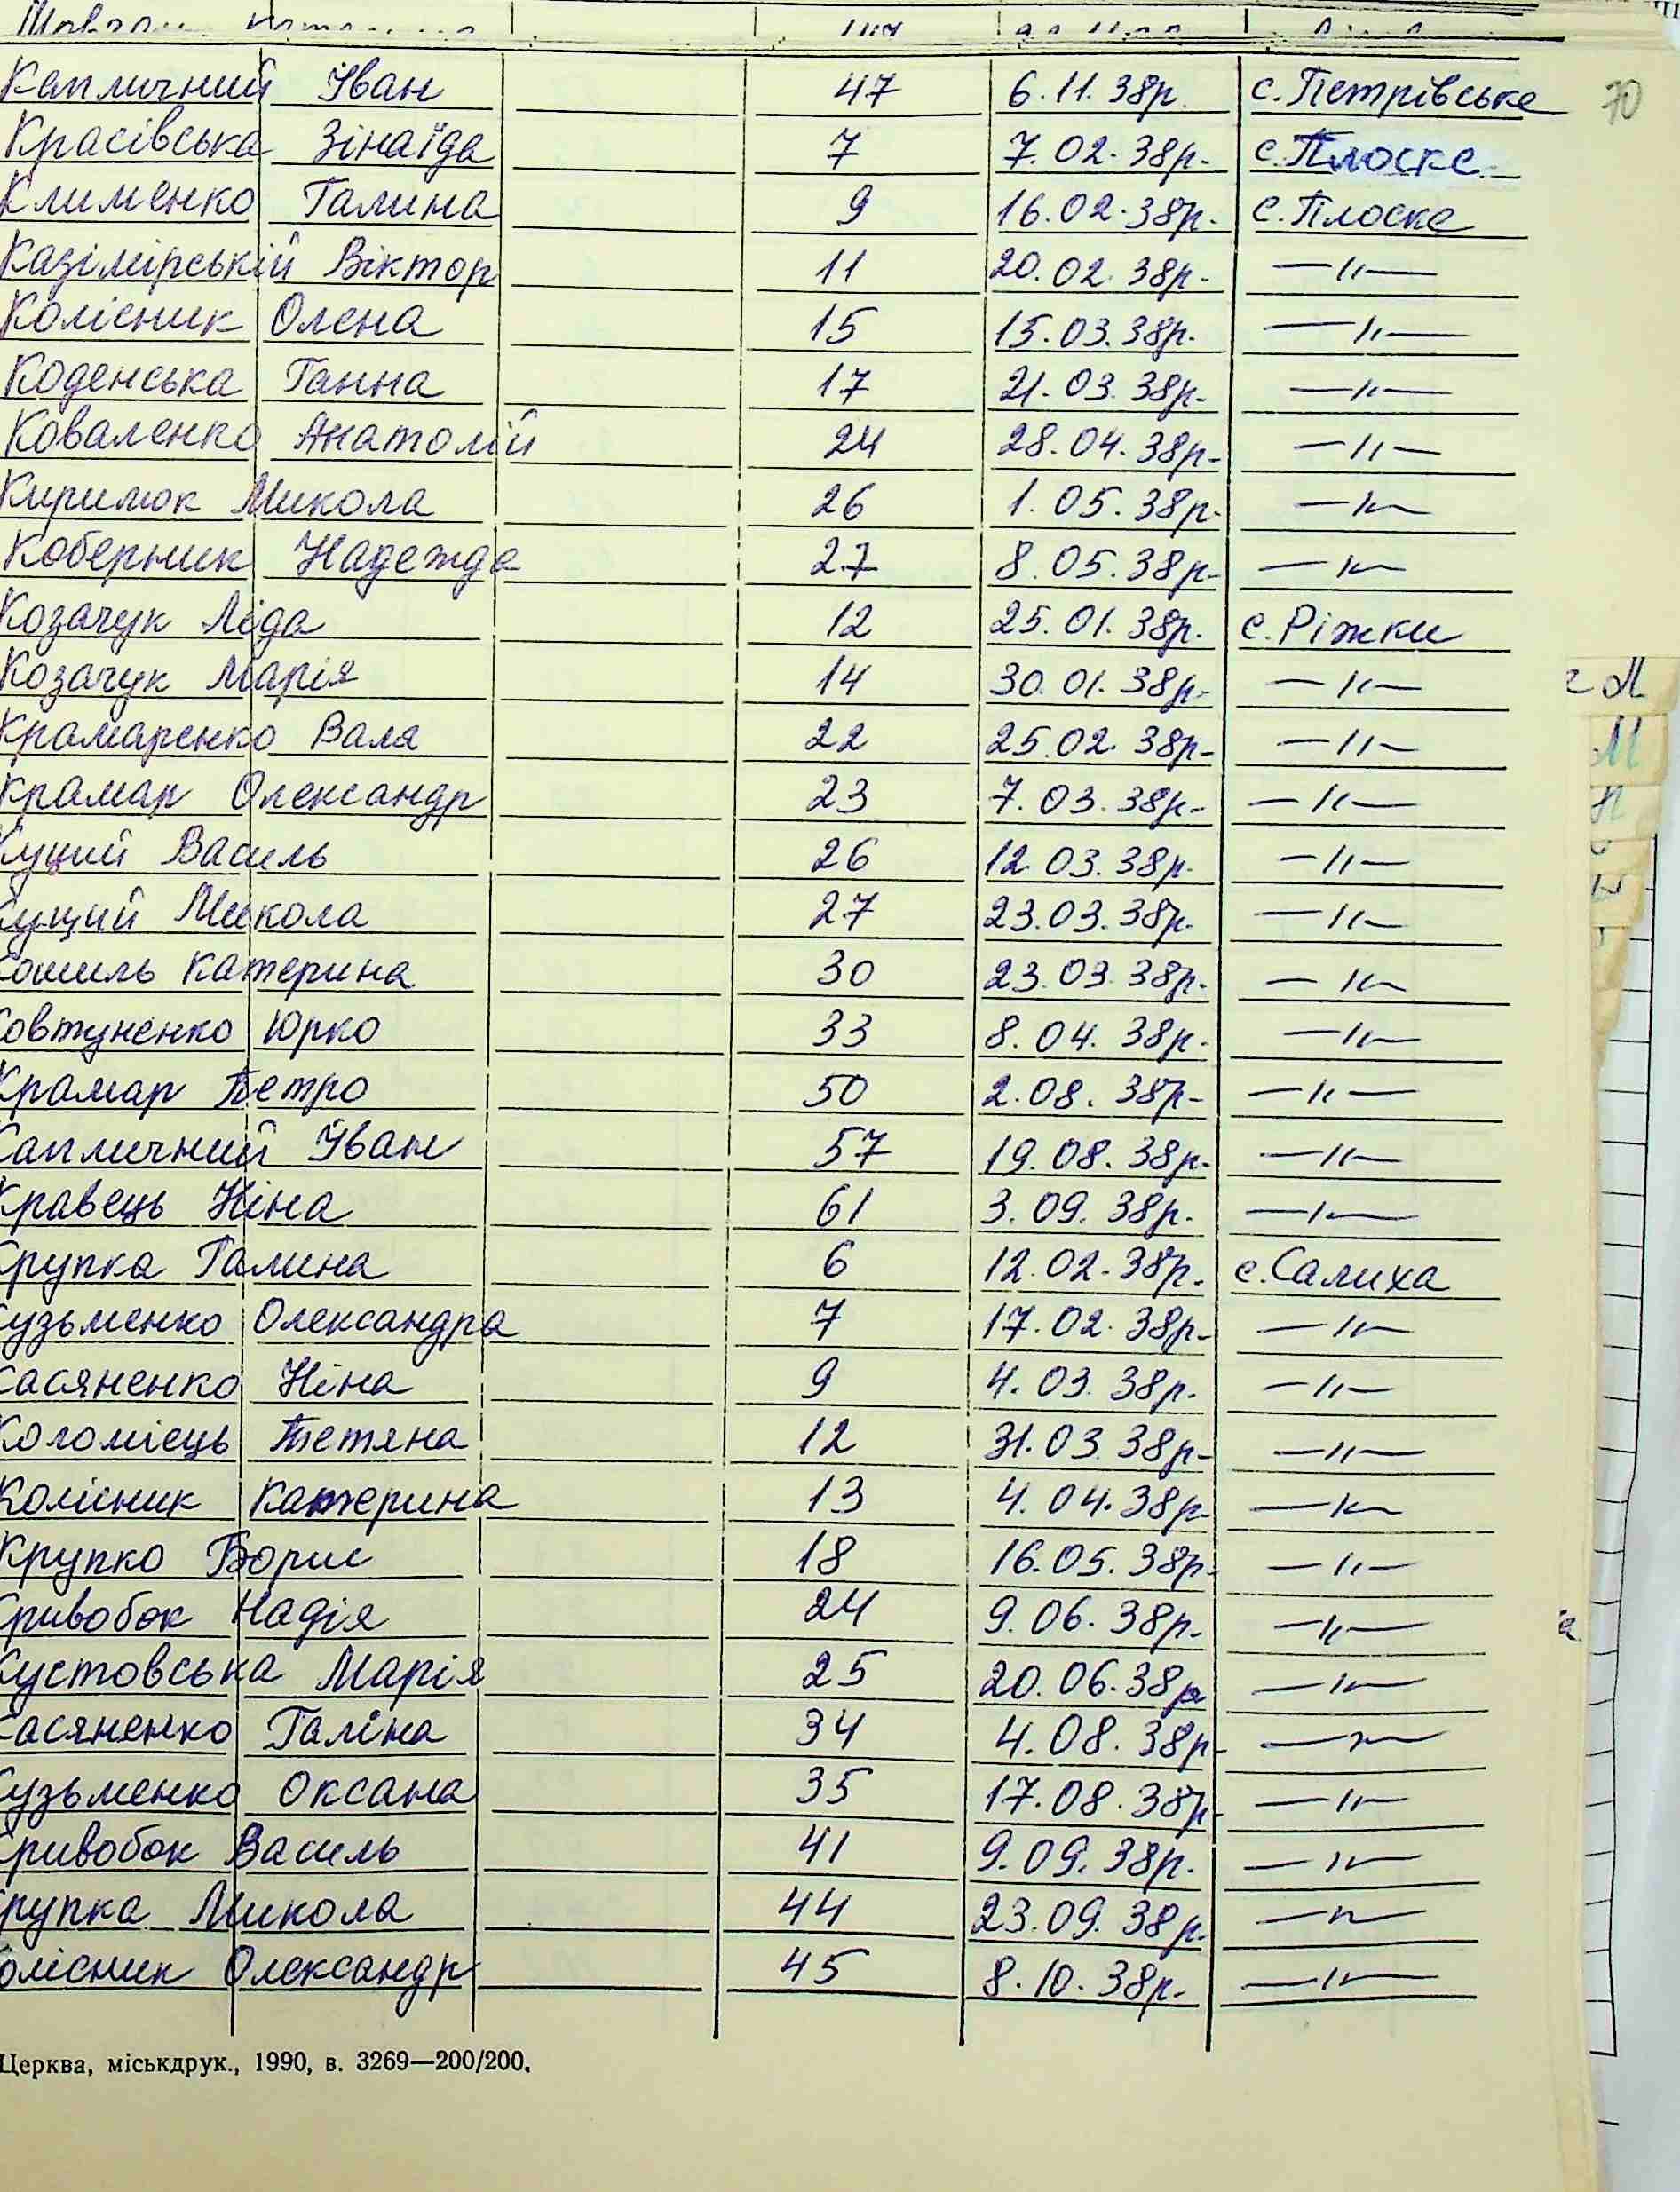 Капличний Іван 47 6.11.38р. с. Петрівське 70
Красівська Зінаїда 7 7.02.38р. с. Плоске
Клименко Галина 9 16.02.38р. с. Плоске
Казімірський Віктор 11 20.02.38р. —"—
Колісник Олена 15 15.03.38р. —"—
Коденська Ганна 17 21.03.38р. —"—
Коваленко Анатолій 24 28.04.38р. —"—
Кирилюк Микола 26 1.05.38р. —"—
Коберник Надежда 27 8.05.38р. —"—
Козачук Ліда 12 25.01.38р. с. Ріжки
Козачук Марія 14 30.01.38р. —"—
Крамаренко Валя 22 25.02.38р. —"—
Крамар Олександр 23 7.03.38р. —"—
Куций Василь 26 12.03.38р. —"—
Кущий Микола 27 23.03.38р. —"—
Кошиль Катерина 30 23.03.38р. —"—
Ковтуненко Юрко 33 8.04.38р. —"—
Крамар Петро 50 2.08.38р. —"—
Капличний Іван 57 19.08.38р. —"—
Кравець Ніна 61 3.09.38р. —"—
Крупка Галина 6 12.02.38р. с. Салиха
Кузьменко Олександра 7 17.02.38р. —"—
Касяненко Ніна 9 4.03.38р. —"—
Коломієць Тетяна 12 31.03.38р. —"—
Колісник Катерина 13 4.04.38р. —"—
Крупко Борис 18 16.05.38р. —"—
Кривобок Надія 24 9.06.38р. —"—
Кустовська Марія 25 20.06.38р —"—
Касяненко Галіна 34 4.08.38р. —"—
Кузьменко Оксана 35 17.08.38р. —"—
Кривобок Василь 41 9.09.38р. —"—
Крупка Микола 44 23.09.38р. —"—
Колісник Олександр 45 8.10.38р. —"—
Церква, міськдрук., 1990, в. 3269—200/200.